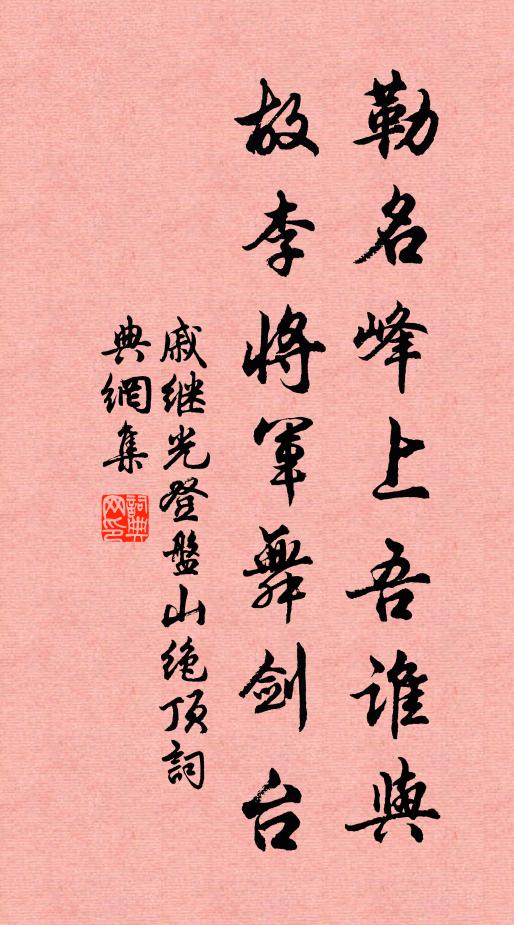 勒名峰上吾谁與
故李將軍舞剑台
戚继光登盤山绝顶詞
典網集
詞典网印